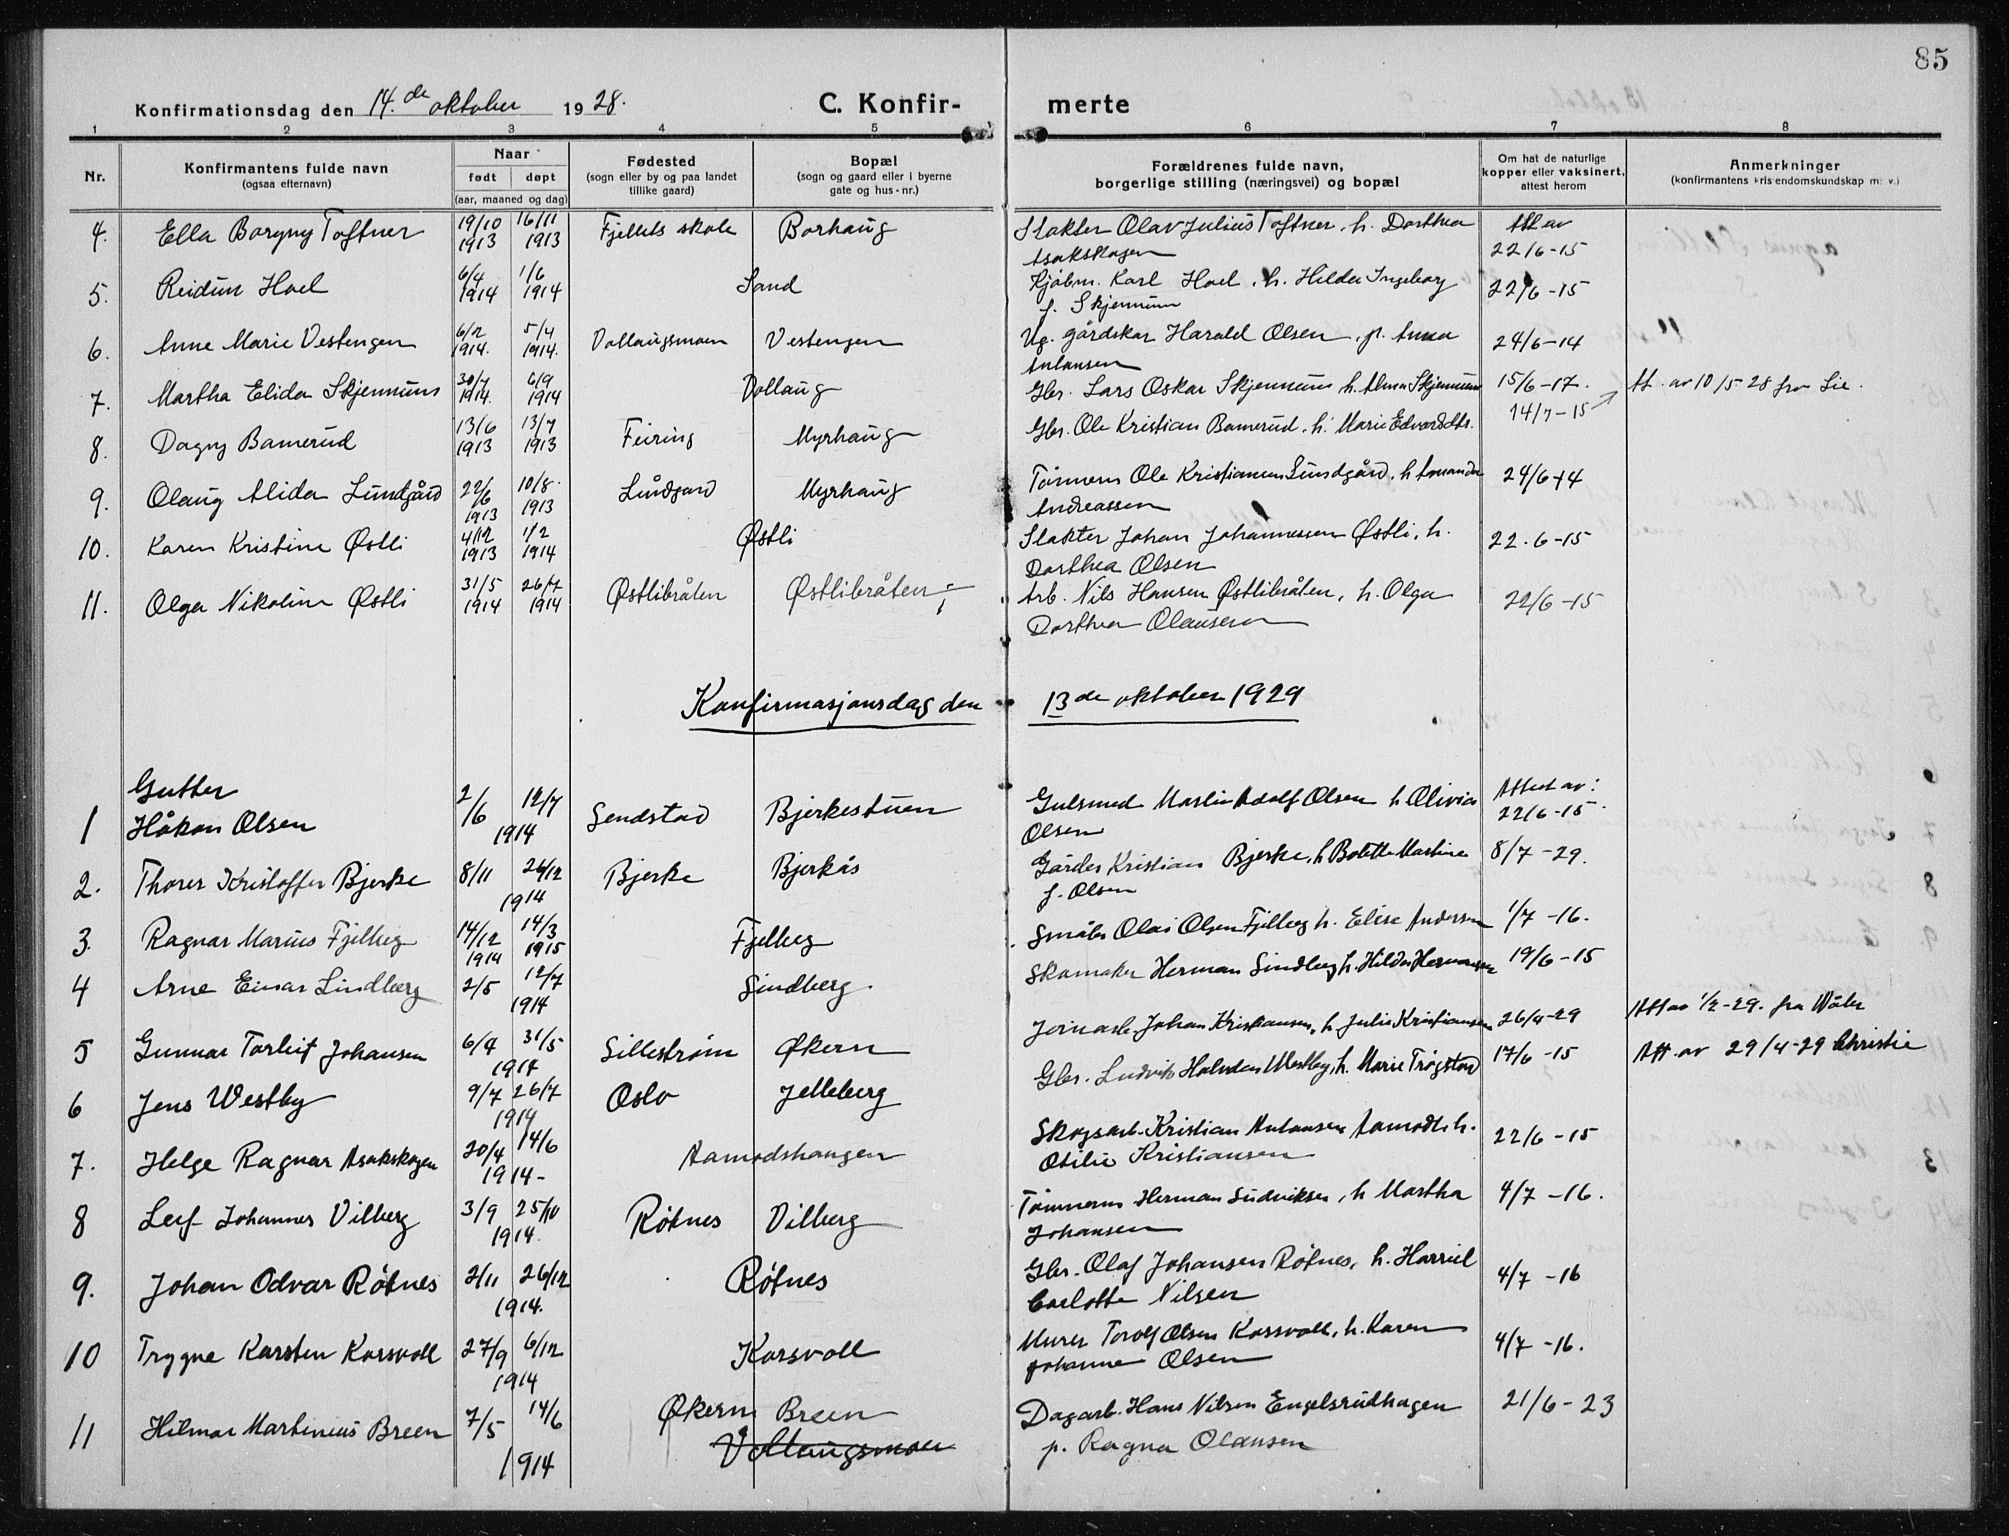 85
Konfirmationsdag den 14. de oktober 1928. C. Konfir- merte
1 2 3 4 5 6 7 8
Nr. Konfirmantens fulde navn (ogsaa efternavn) Naar født døpt (aar, maaned og dag) Fødested (sogn eller by og paa landet tillike gaard) Bopæl (sogn og gaard eller i byerne gate og hus-nr.) Forældrenes fulde navn, borgerlige stilling (næringsvei) og bopæl Om hat de naturlige kopper eller vaksinert, attest herom Anmerkninger (konfirmantens kristendomskundskap m. v.)
4. Ella Borgny Toftner 19/10 1913 16/11 1913 Fjellets skole Borhaug Slakter Olav Julius Toftner, h. Dorthea Att av
Asakskogen 22/6-15
5. Reidun Hoel 6/4 1914 1/6 1914 Sand Kjøbm. Karl Hoel, h. Hilda Ingeborg 22/6-15
f. Skjennum
6. Anne Marie Vestengen 6/2 1914. 5/4 1914. Vollaugsmoen Vestengen Ug. gårdskar Harald Olsen, p. Anna 24/6-14
Antonsen
7. Martha Elida Skjennum 30/7 1914. 6/9 1914 Vollaug Gbr. Lars Oskar Skjennum h. Alma Skjennum 15/6-17. At. av 10/5 28 fra Lie.
8. Dagny Bamerud 13/6 1913 13/7 1913 Feiring Myrhaug Gbr. Ole Kristian Bamerud, h. Marie Edvardsdtr. 14/7-15
9. Olaug Alida Lundgård 22/6 1913 10/8 1913 Lundgård Myrhaug Tømmerm Ole Kristiansen Lundgård, h Amanda 24/6-14
Andreassen
10. Karen Kristine Østli 4/12 1913 1/2 1914 Østli Slakter Johan Johannessen Østli, h. 22.6-15
Dorthea Olsen
11. Olga Nikoline Østli 31/5 1914 26/7 1914 Østlibråten Østlibråten Arb. Nils Hansen Østlibråten, h. Olga 22/6-15
Dorthea Olausen
Konfirmasjonsdag den 13de oktober 1929
Gutter Attest av:
1 Håkon Olsen 2/6 12/7 1914 Sendstad Bjerkestuen Gulsmed Martin Adolf Olsen h Olivia 22/6-15
Olsen
2. Thorer Kristoffer Bjerke 8/11 26/12 1914 Bjerke Bjerkås Gårdbr Kristian Bjerke, h Bolette Martine 8/7-29.
f. Olsen
3. Ragnar Marius Fjelberg 14/12 1914 14/3 1915 Fjelberg Småbr Olai Olsen Fjelberg h. Elise Andersen 1/7-16.
4 Arne Einar Lindberg 2/5 12/7 1914 Lindberg. Skomaker Herman Lindberg h. Hilda Hermansen 19/6-15
5 Gunnar Torleif Johansen 6/4 31/5 1914 Lillestrøm Økern Jernarb. Johan Kristiansen, h Julie Kristiansen 26/4-29 Att av 1/2-29. fra Wåler
6 Jens Westby 9/7 26/7 1914 Oslo Jelleberg Gbr. Ludvik Halvdan Westby, h. Marie Trøgstad 17/6-15 Att. av 29/4-29 Christie
7. Helge Ragnar Asakskogen 20/4 14/6 1914- Aamodshaugen Skogsarb. Kristian Antonsen Aamodt h. 22/6-15
Otilie Kristiansen
8 Leif Johannes Vilberg 3/9 25/10 1914. Røtnes Vilberg Tømmerm Herman Ludviksen, h Martha 4/7-16.
Johansen
9. Johan Odvar Røtnes 2/11 26/12 1914. Røtnes Gbr. Olaf Johansen Røtnes, h. Harriel 4/7-16
Carlotte Nilsen
10 Trygve Karsten Korsvoll 27/9 6/12 1914 Korsvoll Murer Torolf Olsen Korsvoll, h. Karen 4/7-16.
Johanne Olsen
11 Hilmar Martinius Breen 7/5 14/6 1914 Økern Breen Dagarb. Hans Nilsen Engelsrudhagen 21/6-23
Vollaugsmoen p. Ragna Olausen